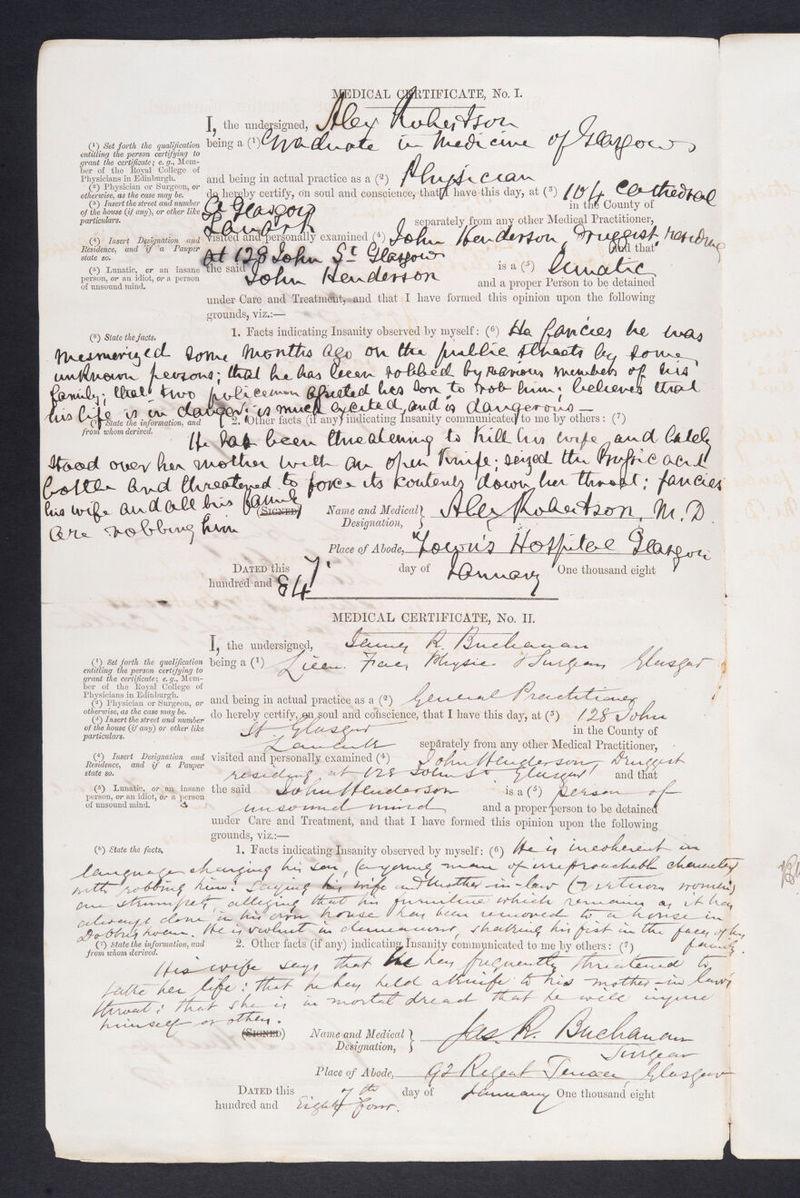 MEDICAL CERTIFICATE, No. I.
I, the undersigned, Alex Robertson
(¹) Set forth the qualification entitling the person certifying to grant the certificate; e. g., Member of the Royal College of Physicians in Edinburgh.
being a (¹) Graduate in Medicine of Glasgow
(²) Physician or Surgeon, or otherwise, as the case may be.
and being in actual practice as a (²) Physician
(³) Insert the street and number of the house (if any), or other like particulars.
do hereby certify, on soul and conscience, that I have this day, at (³) 104 Cathedral
St Glasgow in the County of
Lanark separately from any other Medical Practitioner,
(⁴) Insert Designation and Residence, and if a Pauper state so.
visited and personally examined (⁴) John Henderson, Druggist, residing
at 128 John St Glasgow and that
(⁵) Lunatic, or an insane person, or an idiot, or a person of unsound mind.
the said John Henderson is a (⁵) Lunatic
and a proper Person to be detained
under Care and Treatment, and that I have formed this opinion upon the following
grounds, viz.:—
(⁶) State the facts.
1. Facts indicating Insanity observed by myself: (⁶) He fancies he was
mesmerized some months ago on the public streets by some
unknown persons; that he has been robbed by various members of his
family; that two policemen assisted his son to rob him; believes that
his life is in danger; is much excited, and is dangerous —
(⁷) State the information, and from whom derived.
2. Other facts (if any) indicating Insanity communicated to me by others: (⁷)
He has been threatening to kill his wife and lately
stood over her mother with an open knife; seized the Prussic acid
bottle and threatened to force its contents down her throat; fancies
his wife and all his family
are robbing him
(SIGNED) Name and Medical Designation, Alex Robertson, M.D.
Place of Abode, Town's Hospital Glasgow
DATED this 7th day of January One thousand eight
hundred and 84
MEDICAL CERTIFICATE, No. II.
I, the undersigned, James R. Buchanan
(¹) Set forth the qualification entitling the person certifying to grant the certificate; e. g., Member of the Royal College of Physicians in Edinburgh.
being a (¹) Licen. Fac. Physic. & Surgeons Glasgow
(²) Physician or Surgeon, or otherwise, as the case may be.
and being in actual practice as a (²) General Practitioner
(³) Insert the street and number of the house (if any) or other like particulars.
do hereby certify, on soul and conscience, that I have this day, at (³) 128 John
St Glasgow in the County of
Lanark separately from any other Medical Practitioner,
(⁴) Insert Designation and Residence, and if a Pauper state so.
visited and personally examined (⁴) John Henderson, Druggist
residing at 128 John St Glasgow and that
(⁵) Lunatic, or an insane person, or an idiot, or a person of unsound mind.
the said John Henderson is a (⁵) person of
unsound mind and a proper person to be detained
under Care and Treatment, and that I have formed this opinion upon the following
grounds, viz.:—
(⁶) State the facts,
1. Facts indicating Insanity observed by myself: (⁶) He is incoherent in
language charging his son, (a young man of irreproachable character)
with robbing him: Saying his wife and mother-in-law (virtuous women)
are strumpets alleging that his furniture which remains as it has
always done in his own house has been removed to a house in
Dobbies Loan. He is violent in demeanour, shaking his fist in the faces of his
family.
(⁷) State the information, and from whom derived.
2. Other facts (if any) indicating Insanity communicated to me by others: (⁷)
His wife says that he has frequently threatened to
take her life: that he has held a knife to his mother-in-law's
throat: that she is in mortal dread that he will injure
himself or others.
(SIGNED) Name and Medical Designation, Jas. R. Buchanan
Surgeon
Place of Abode, 92 Regent Terrace, Glasgow
DATED this 7th day of January One thousand eight
hundred and Eighty four.